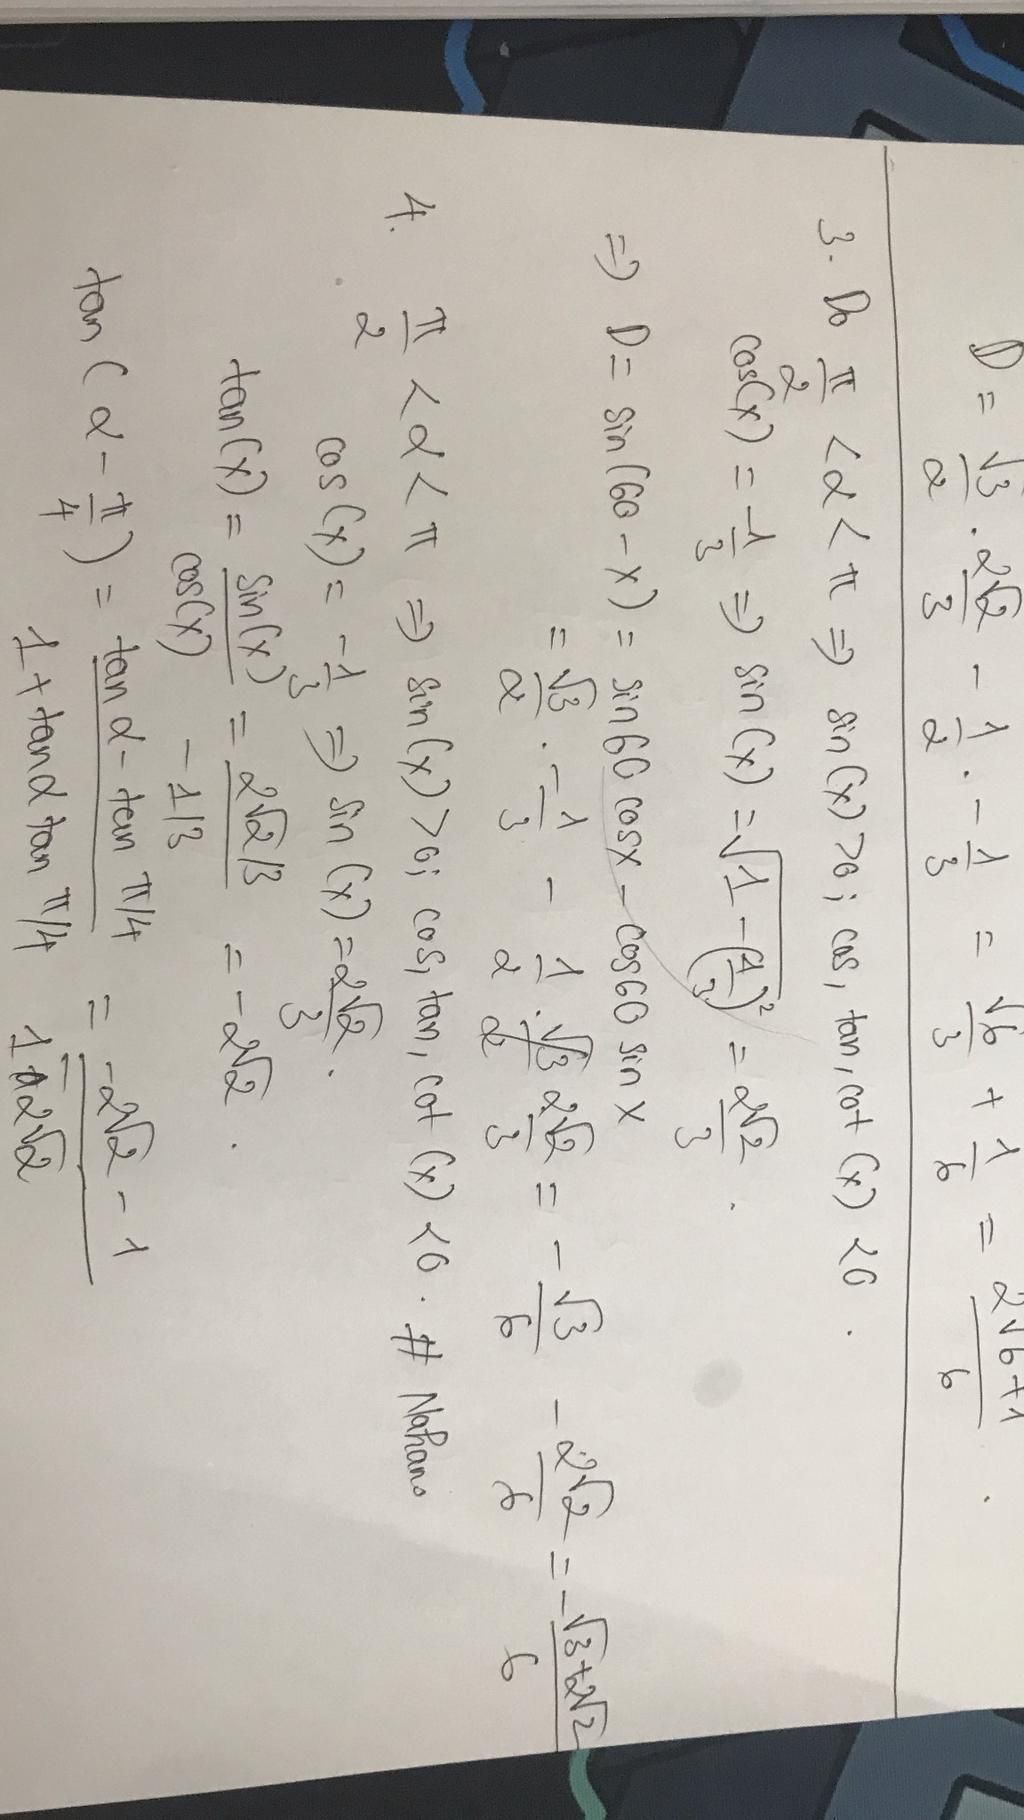 D = √3/2 . 2√2/3 - 1/2 . -1/3 = √6/3 + 1/6 = 2√6+1/6 .
3. Do π/2 < α < π => sin(x) > 0; cos, tan, cot (x) < 0 .
cos(x) = -1/3 => sin(x) = √1-(1/3)² = 2√2/3 .
=> D = sin(60 - x) = sin60 cosx - cos60 sin x
= √3/2 . -1/3 - 1/2 . 2√2/3 = -√3/6 - 2√2/6 = -√3+2√2/6
4. π/2 < α < π => sin(x) > 0; cos, tan, cot (x) < 0 . #
cos(x) = -1/3 => sin(x) = 2√2/3 .
tan(x) = sin(x)/cos(x) = 2√2/3/-1/3 = -2√2 .
tan(α - π/4) = tan α - tan π/4/1 + tanα tan π/4 = -2√2 - 1/1 - 2√2